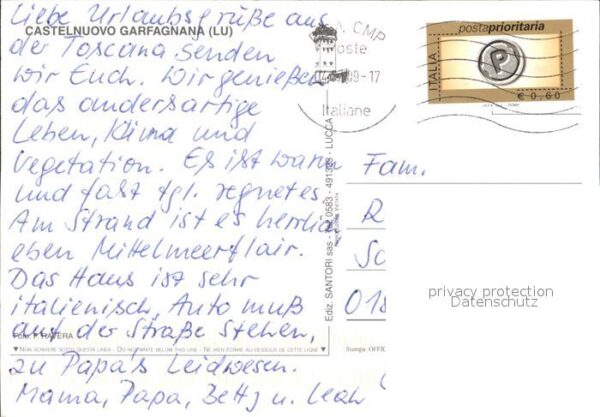 Liebe Urlaubsgrüße aus
CASTELNUOVO GARFAGNANA (LU)
der Toscana senden
wir Euch. Wir genießen
das andersartige
Leben, Klima und
Vegetation. Es ist warm
und fast tgl. regnet es.
Am Strand ist es herrlich
eben Mittelmeerflair.
Das Haus ist sehr
italienisch, Auto muß
auf der Straße stehen,
Foto: F. RAVERA
NON SCRIVERE SOTTO QUESTA LINEA - DO NOT WRITE BELOW THIS LINE - NE RIEN ECRIRE AU-DESSOUS DE CETTE LIGNE
zu Papa's Leidwesen.
Mama, Papa, Betty u. Leah
Ediz. SANTORI sas - 0583 - LUCCA
CMP
Poste
09-17
Italiane
postaprioritaria
ITALIA
P
€ 0,60
Fam.
R
Sc
018
Stampa: OFFIC
privacy protection
Datenschutz